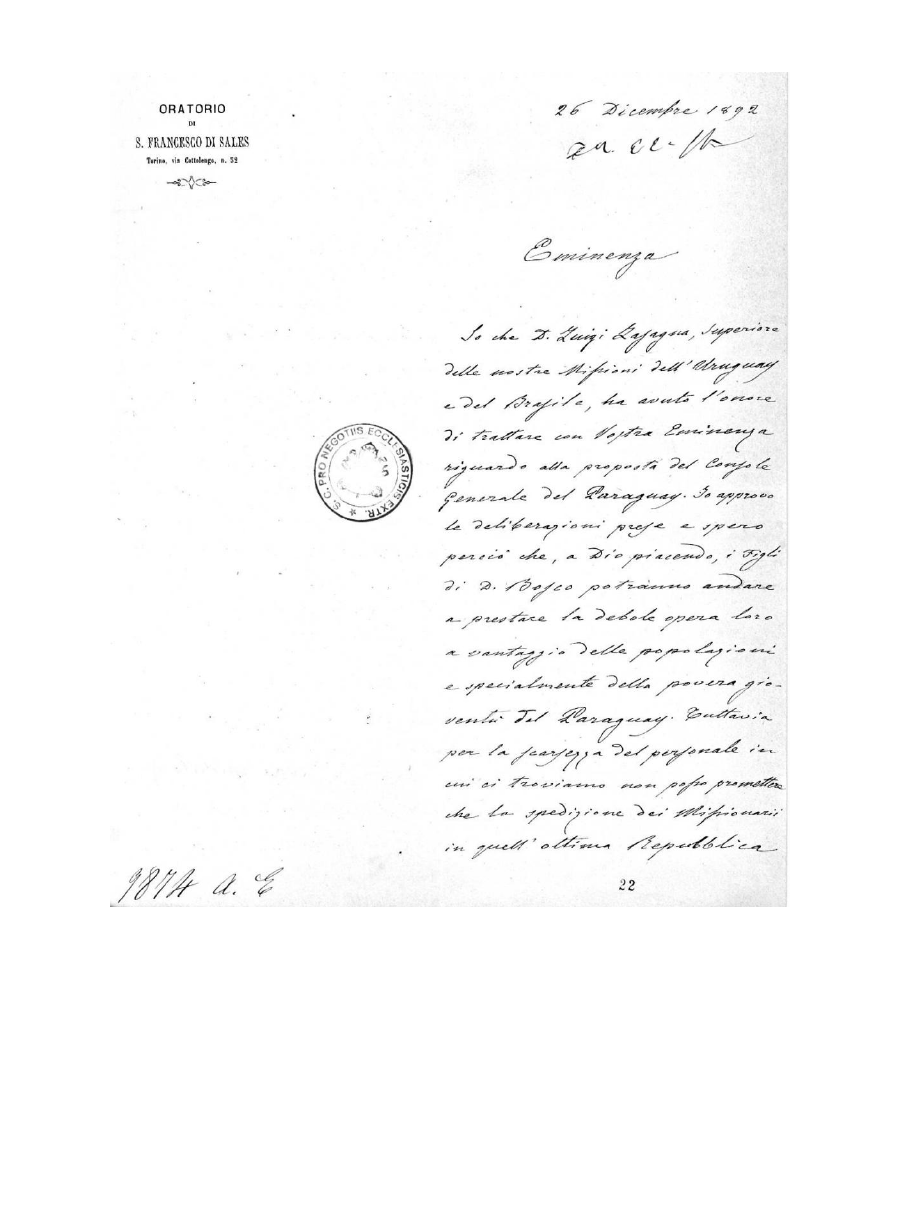 ORATORIO
DI
S. FRANCESCO DI SALES
Torino, via Cottolengo, n. 32
26 Dicembre 1892
Eminenza
So che D. Luigi Lasagna, Superiore
delle nostre Missioni dell'Uruguay
e del Brasile, ha avuto l'onore
di trattare con Vostra Eminenza
riguardo alla proposta del Console
Generale del Paraguay. Io approvo
le deliberazioni prese e spero
perciò che, a Dio piacendo, i Figli
di D. Bosco potranno andare
a prestare la debole opera loro
a vantaggio delle popolazioni
e specialmente della povera gio-
ventù del Paraguay. Tuttavia
per la scarsezza del personale in
cui ci troviamo non posso promettere
che la spedizione dei Missionarii
in quell'ottima Repubblica
S. C. PRO NEGOTIIS ECCLESIASTICIS EXTR.
9874 A. E
22